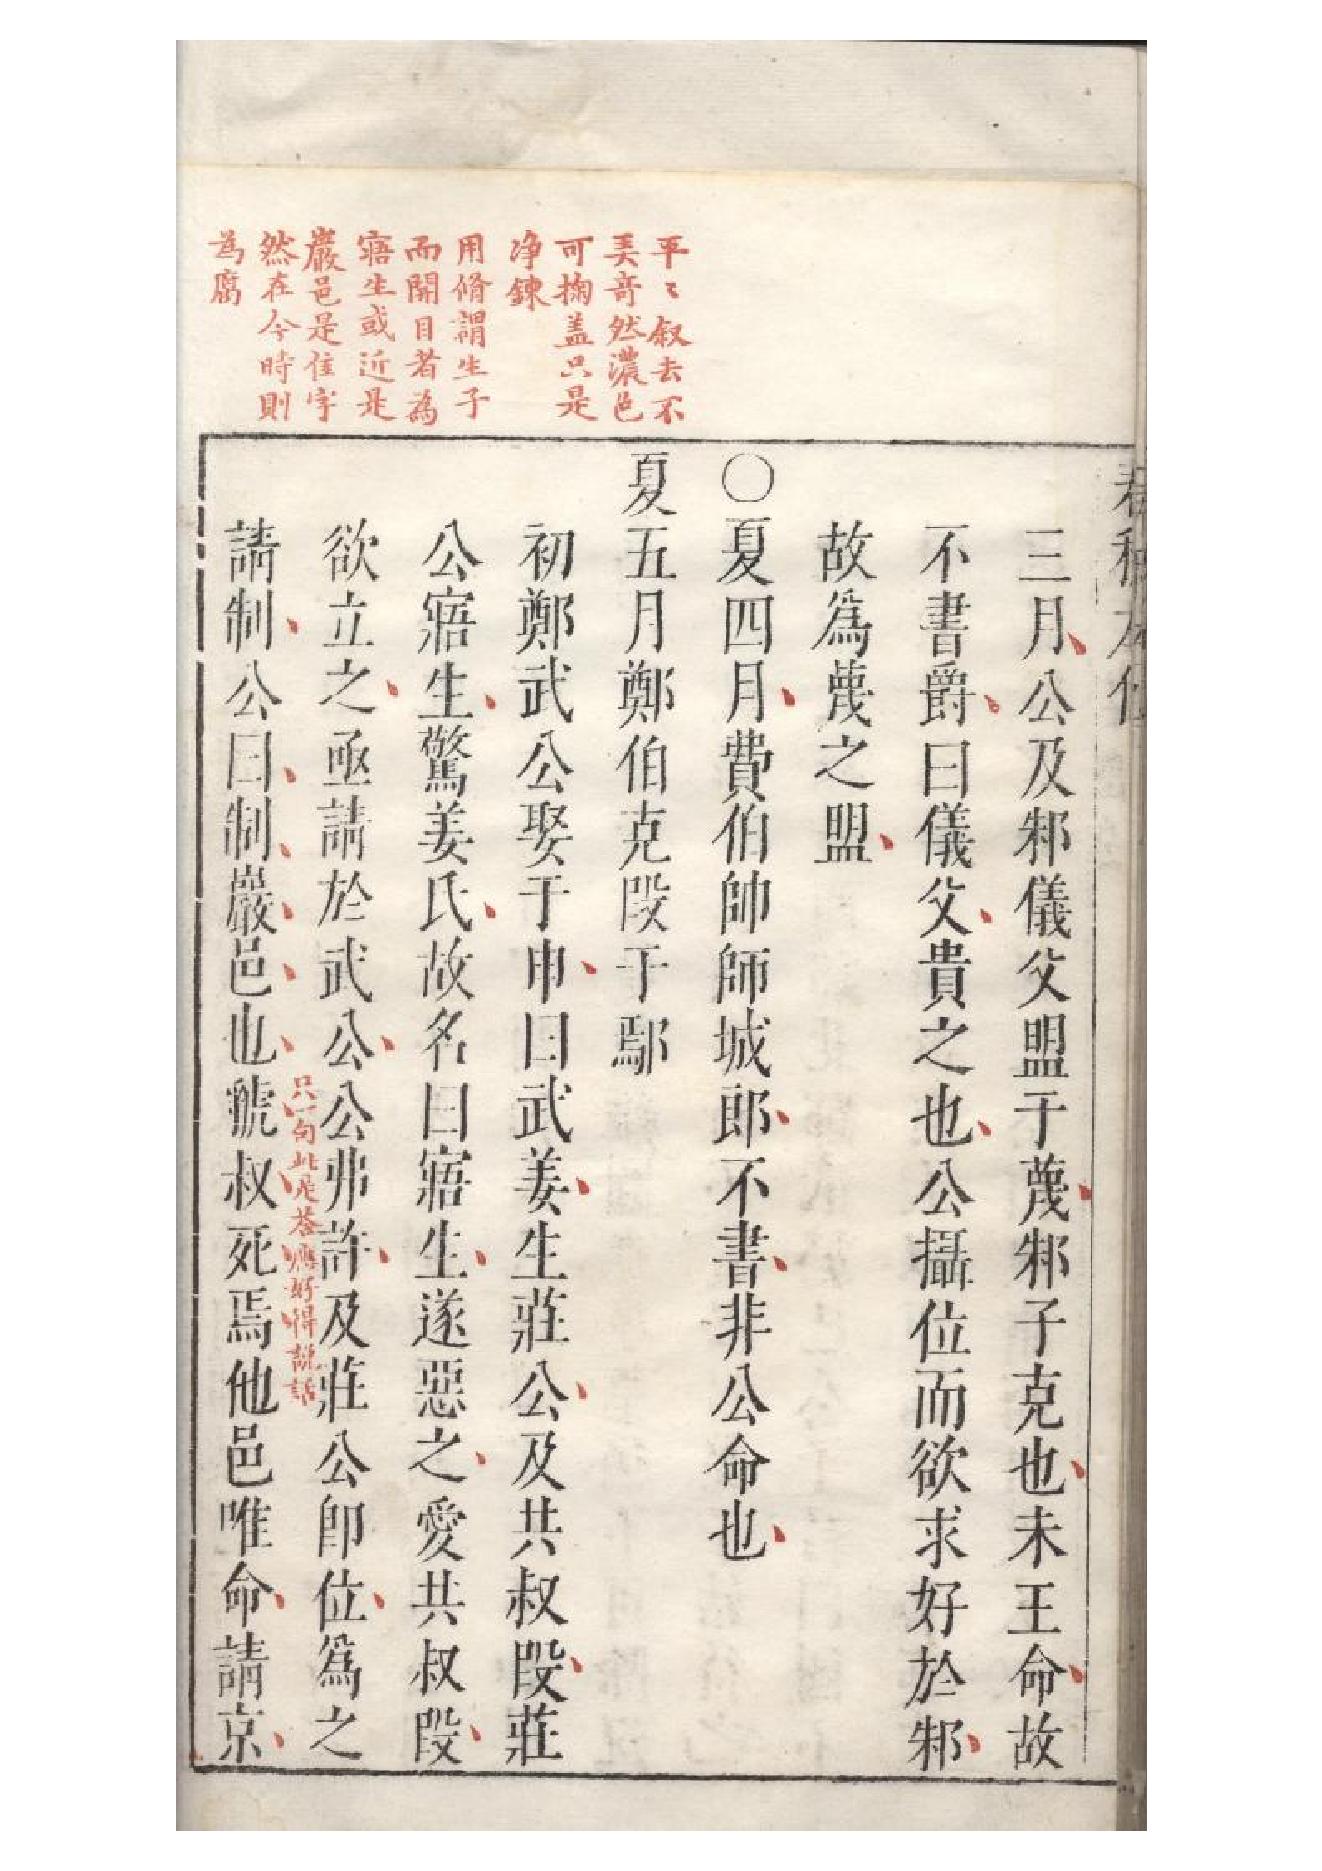 春秋左傳
平〻叙去不
美竒然濃色
可掬盖只是
净錬
用脩謂生子
而開目者為
寤生或近是
嚴邑是佳字
然在今時則
為腐
三月公及邾儀父盟于蔑邾子克也未王命故
不書爵曰儀父貴之也公攝位而欲求好於邾
故爲蔑之盟
〇夏四月費伯帥師城郎不書非公命也
夏五月鄭伯克段于鄢
初鄭武公娶于申曰武姜生莊公及共叔段莊
公寤生驚姜氏故名曰寤生遂惡之愛共叔段
欲立之亟請於武公公弗許及莊公卽位爲之
只一句此是荅應好得説話
請制公曰制巖邑也虢叔死焉他邑唯命請京